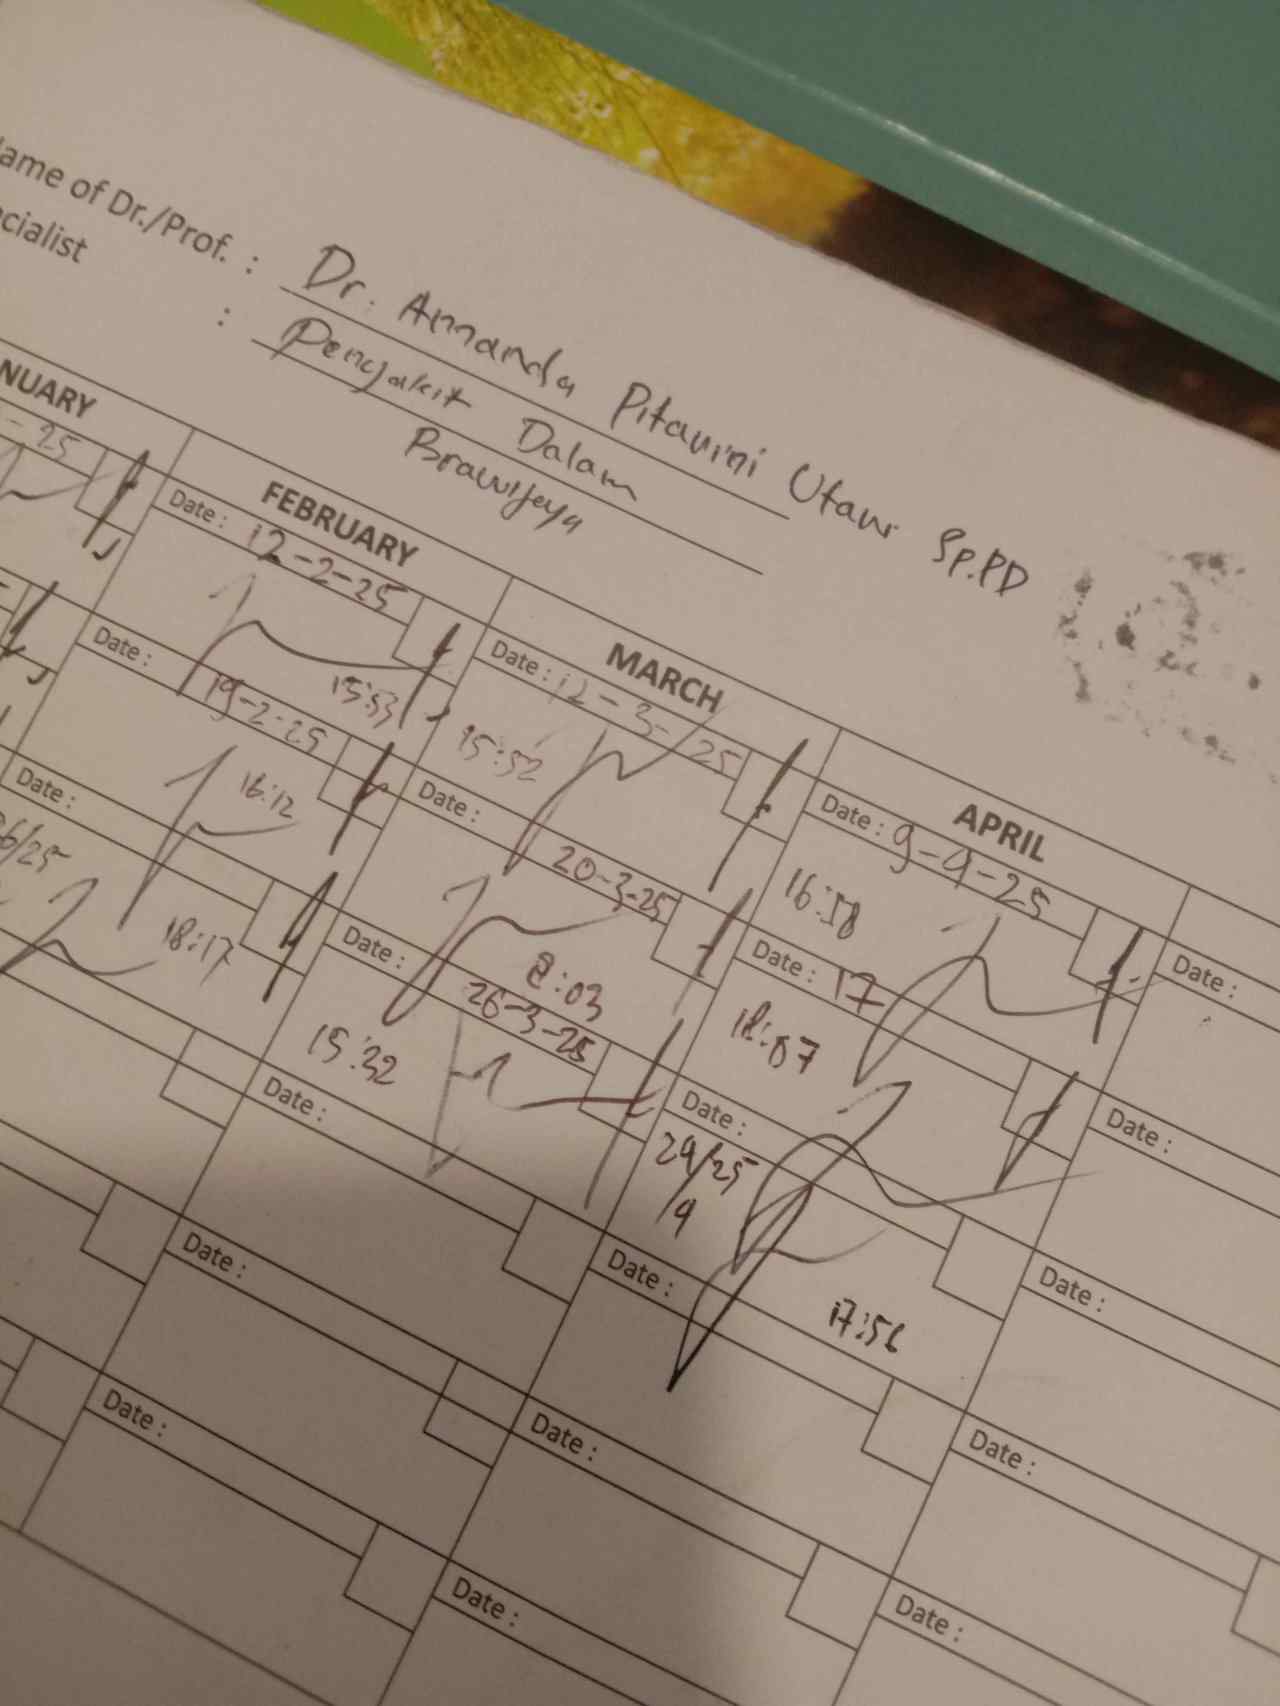 ame of Dr./Prof. : Dr. Annanda Pitarini Utami Sp.PD
cialist : Penyakit Dalam
Brawijaya
NUARY FEBRUARY MARCH APRIL
- 25
Date : 12-2-25
15:53
Date : 12-3-25
15:52
Date : 9-4-25
16:58
Date :
Date : 19-2-25
16:12
Date : 20-3-25
8:03
Date : 17
Date :
Date :
18:17
Date : 26-3-25
15:32
Date :
29/25
/4
17:56
Date :
Date :
Date :
Date :
Date :
Date :
Date :
Date :
Date :